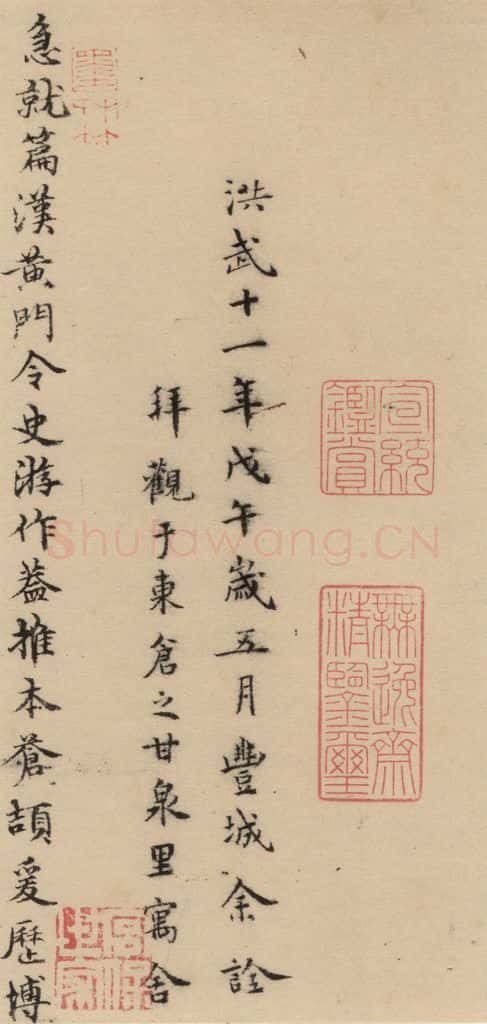 宣統鑑賞
無逸齋精鑒璽
洪武十一年戊午嵗五月豐城余詮
拜觀于東倉之甘泉里寓舍
急就篇漢黃門令史游作葢推本蒼頡爰歷博
Shufawang.CN